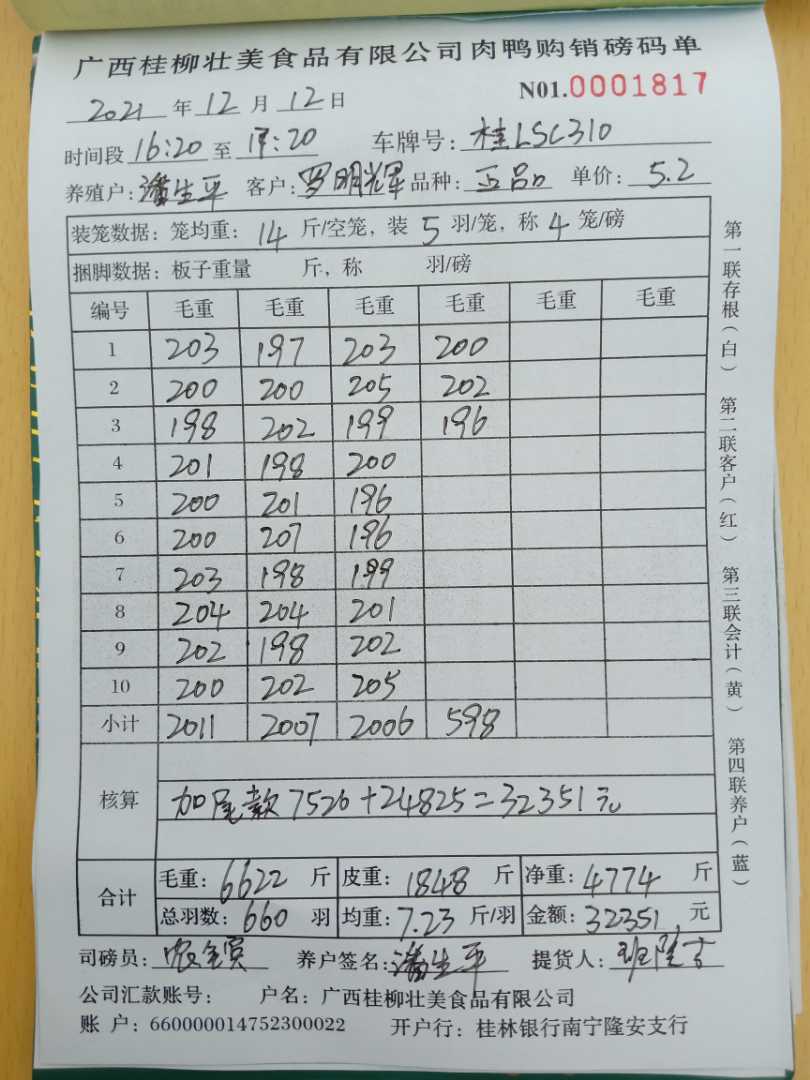 广西桂柳壮美食品有限公司肉鸭购销磅码单
2021 年 12 月 12 日 N01.0001817
时间段 16:20 至 17:20 车牌号: 桂LSC310
养殖户: 潘生平 客户: 罗明辉 品种: 正品 单价: 5.2
装笼数据: 笼均重: 14 斤/空笼, 装 5 羽/笼, 称 4 笼/磅
捆脚数据: 板子重量 斤, 称 羽/磅
编号 毛重 毛重 毛重 毛重 毛重 毛重
1 203 197 203 200
2 200 200 205 202
3 198 202 199 196
4 201 198 200
5 200 201 196
6 200 207 196
7 203 198 199
8 204 204 201
9 202 198 202
10 200 202 205
小计 2011 2007 2006 598
核算 加尾款 7526+24825=32351元
合计 毛重: 6622 斤 皮重: 1848 斤 净重: 4774 斤
总羽数: 660 羽 均重: 7.23 斤/羽 金额: 32351 元
司磅员: 养户签名: 潘生平 提货人:
公司汇款账号: 户名: 广西桂柳壮美食品有限公司
账 户: 660000014752300022 开户行: 桂林银行南宁隆安支行
第一联存根(白) 第二联客户(红) 第三联会计(黄) 第四联养户(蓝)